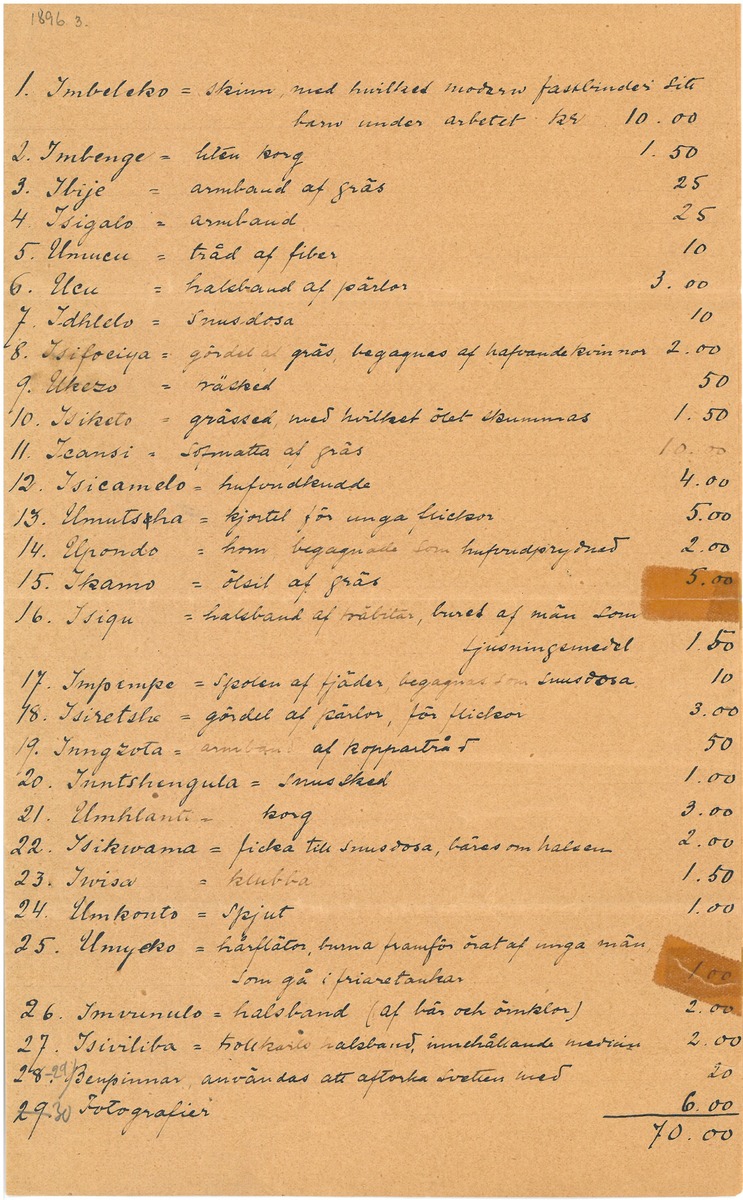 1896. 3.
1. Imbeleko = skinn, med hvilket modern fastbinder sitt
barn under arbetet kr 10.00
2. Imbenge = liten korg 1.50
3. Ibije = armband af gräs 25
4. Isigalo = armband 25
5. Umucu = tråd af fiber 10
6. Ucu = halsband af pärlor 3.00
7. Idhlelo = snusdosa 10
8. Isifociya = gördel af gräs, begagnas af hafvande kvinnor 2.00
9. Ukezo = räsked 50
10. Isiketo = grässed, med hvilket ölet skummas 1.50
11. Icansi = sofmatta af gräs 10.00
12. Isicamelo = hufvudkudde 4.00
13. Umutsha = kjortel för unga flickor 5.00
14. Upondo = horn begagnade som hufvudprydned 2.00
15. Ikamo = ölsil af gräs 5.00
16. Isiqu = halsband af träbitar, buret af män som
tjusningsmedel 1.50
17. Impempe = spolen af fjäder, begagnas som snusdosa 10
18. Isiretshe = gördel af pärlor, för flickor 3.00
19. Inngzota = armband af koppartråd 50
20. Inntshengula = snussked 1.00
21. Umhlanti = korg 3.00
22. Isikwama = ficka till snusdosa, bäres om halsen 2.00
23. Iwisa = klubba 1.50
24. Umkonto = spjut 1.00
25. Umyeko = hårflätor, burna framför örat af unga män,
som gå i friaretankar 1.00
26. Imvunulo = halsband (af bär och örnklor) 2.00
27. Isiviliba = trollkarls halsband, innehållande medicin 2.00
28-29. Benpinnar, användas att aftorka svetten med 20
29.30 Fotografier 6.00
70.00